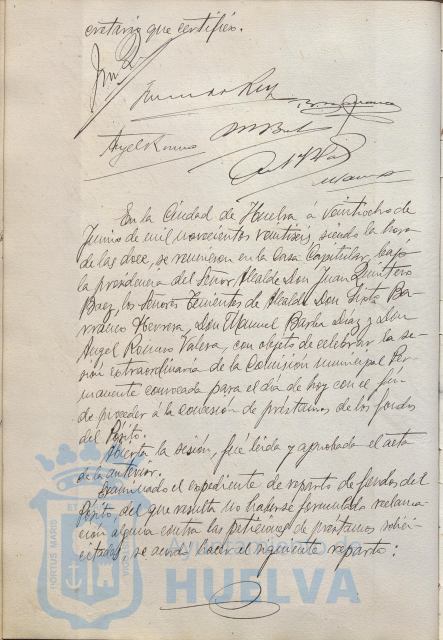 cretario que certifico.
Angel Romero
En la Ciudad de Huelva á veintiocho de
Junio de mil novecientos veintiseis, siendo la hora
de las doce, se reunieron en la Casa Capitular, bajo
la presidencia del Señor Alcalde Don Juan Quintero
Baez, los Señores Tenientes de Alcalde Don Sixto Ba-
rranco Herrera, Don Manuel Barba Diaz y Don
Angel Romero Valera, con objeto de celebrar la se-
sion extraordinaria de la Comisión municipal Per-
manente convocada para el día de hoy con el fin
de proceder á la concesión de préstamos de los fondos
del Pósito.
Abierta la sesión, fué leida y aprobada el acta
de la anterior.
Examinado el expediente de reparto de fondos del
Pósito del que resulta no haberse formulado reclama-
ción alguna contra las peticiones de préstamos solici-
citados, se acordó hacer el siguiente reparto:
PORTUS MARIS ET
Ayuntamiento de
HUELVA